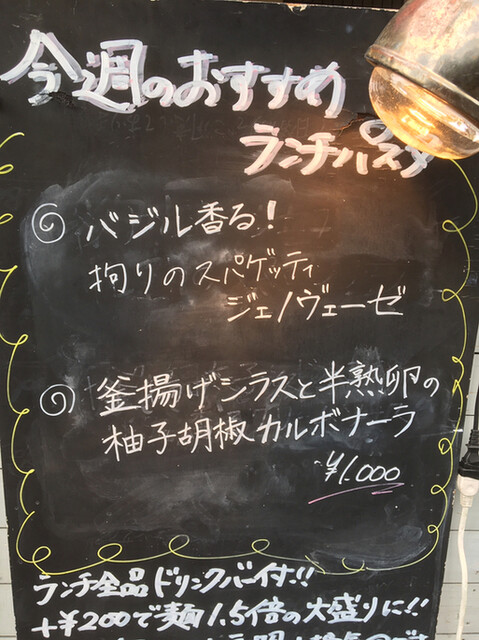 今週のおすすめ
ランチパスタ
バジル香る!
拘りのスパゲッティ
ジェノヴェーゼ
釜揚げシラスと半熟卵の
柚子胡椒カルボナーラ
¥1.000
ランチ全品ドリンクバー付!!
+¥200で麺1.5倍の大盛りに!!